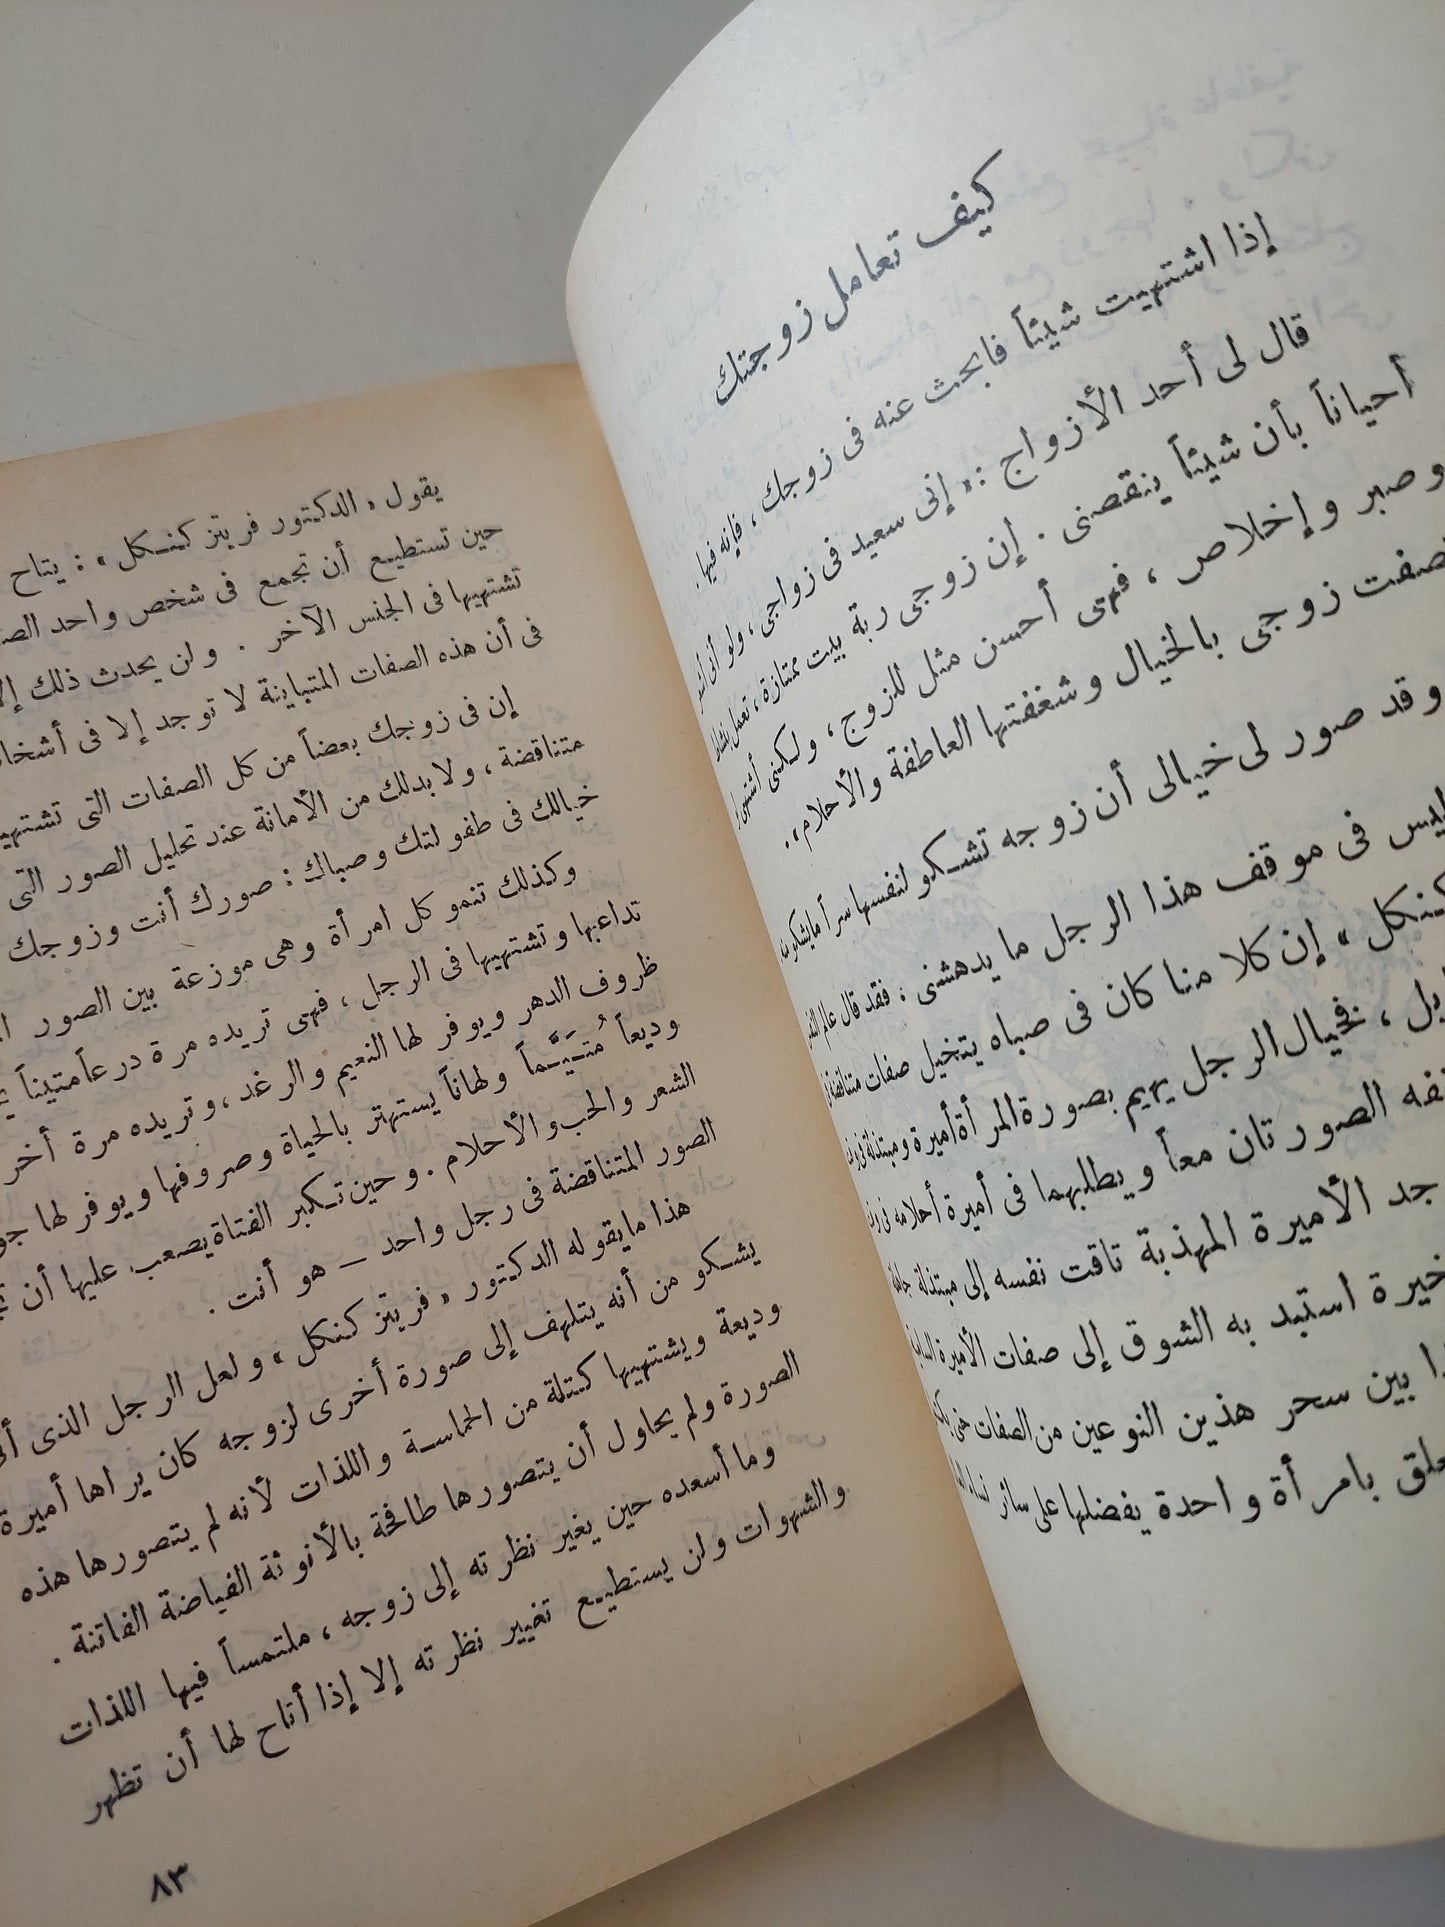 كيف تعامل زوجتك
إذا اشتهيت شيئاً فابحث عنه فى زوجك ، فإنه فيها .
قال لى أحد الأزواج : « إنى سعيد فى زواجى ، ولو أنى أشعر
أحياناً بأن شيئاً ينقصنى . إن زوجى ربة بيت ممتازة ، تعمل بنشاط
وصبر وإخلاص ، فهى أحسن مثل للزوج ، ولكنى أشتهى
تصفت زوجى بالخيال وشغفتها العاطفة والأحلام » .
وقد صور لى خيالى أن زوجه تشكو لنفسها سراً ما يشكوه
ليس فى موقف هذا الرجل ما يدهشنى ، فقد قال عالم
كنكل » إن كلا منا كان فى صباه يتخيل صفات متناقضة
، فخيال الرجل يهيم بصورة المرأة أميرة ومبتذلة فى
الصورتان معاً ويطلبهما فى أميرة أحلامه
جد الأميرة المهذبة تاقت نفسه إلى مبتذلة
استبد به الشوق إلى صفات الأميرة
بين سحر هذين النوعين من الصفات حتى
بامرأة واحدة يفضلها على سائر
يقول « الدكتور فريتز كنكل » : يتاح
حين تستطيع أن تجمع فى شخص واحد
تشتهيها فى الجنس الآخر . ولن يحدث ذلك
فى أن هذه الصفات المتباينة لا توجد إلا فى
إن فى زوجك بعضاً من كل الصفات التى
متناقضة ، ولا بد لك من الأمانة عند تحليل الصور التى
خيالك فى طفولتك وصباك : صورك أنت وزوجك
وكذلك تنمو كل امرأة وهى موزعة بين الصور
تداعبها وتشتهيها فى الرجل ، فهى تريده مرة درعاً متيناً
ظروف الدهر ويوفر لها النعيم والرغد ، وتريده مرة
وديعاً مُتَيَّماً ولهاناً يستهتر بالحياة وصروفها ويوفر لها
الشعر والحب والأحلام . وحين تكبر الفتاة يصعب عليها أن
الصور المتناقضة فى رجل واحد — هو أنت .
هذا ما يقوله الدكتور « فريتز كنكل » ولعل الرجل الذى
يشكو من أنه يتلهف إلى صورة أخرى لزوجه كان يراها أميرة
وديعة ويشتهيها كتلة من الحماسة واللذات لأنه لم يتصورها هذه
الصورة ولم يحاول أن يتصورها طافحة بالأنوثة الفياضة الفاتنة .
وما أسعده حين يغير نظرته إلى زوجه ، ملتمساً فيها اللذات
والشهوات ولن يستطيع تغيير نظرته إلا إذا أتاح لها أن تظهر
٨٣